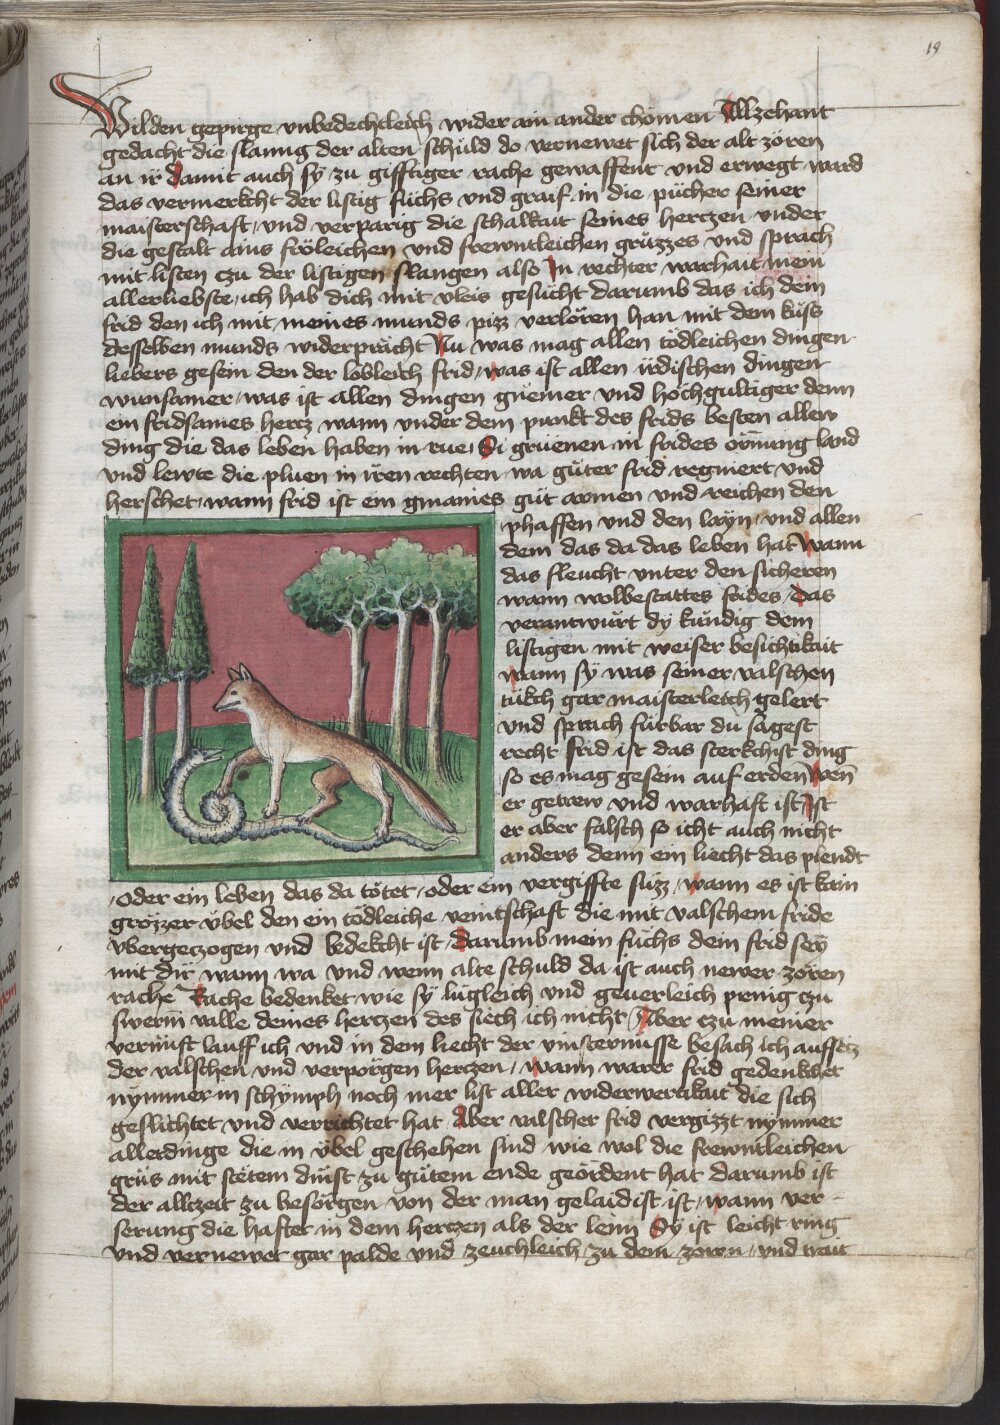 19
Wilden gepirge vnbedechtleich wider ain ander chömen Allzehant
gedacht die slanng der alten schuld do vernewet sich der alt zoren
an ir damit auch sy zu gifftiger rache gewaffent und erwegt ward
das vermerkcht der listig fuchs und graif in die pücher seiner
maisterschaft und verparig die schalkait seines hertzen vnder
die gestalt ains fröleichen und frewntleichen grüzzes und sprach
mit listen czu der listigen slangen also In rechter warhait mein
allerliebste ich hab dich mit vleis gesucht darumb das ich dein
frid den ich mit meines munds pizz verloren han mit dem kuss
desselben munds widerprächt Nu was mag allen tödleichen dingen
liebers gesein den der lobleich frid was ist allen irdischen dingen
wunsamer was ist allen dingen gnemer und hochgultiger denn
ein fridsames hertz wann vnder dem punkt des frids besten allew
ding die das leben haben in rue Si gruenen in frides ornung land
und lewte die pluen in iren rechten wa guter frid regniert und
herschet wann frid ist ein gmaines gut armen und reichen den
phaffen und den layn und allen
dem das da das leben hat wann
das fleucht unter den sicheren
wann wolbestattes frides Das
verantwurt dy kündig dem
listigen mit weiser besichtikait
wann sy was seiner valschen
tükch gar maisterleich gelert
und sprach fürbar du sagest
recht frid ist das sterkchist ding
so es mag gesein auf erden wen
er getrew und warhaft ist Ist
er aber falsch so icht auch nicht
anders denn ein liecht das plendt
oder ein leben das da tötet oder ein vergiffte süzz wann es ist kain
grözzer übel den ein tödleiche veintschaft die mit valschem fride
vbergezogen und bedekcht ist Darumb mein fuchs dein frid sey
mit dir wann wa und wenn alte schuld da ist auch newer zoren
rache Rache bedenket wie sy lugleich und geuerleich pring czu
swerm valle deines hertzen des siech ich nicht Aber czu meiner
vernuft lauff ich und in dem liecht der vinsternüsse besach ich auffsecz
der valschen und verporgen hertzen wann warer frid gedenkhet
nymmer in schympf noch mer list aller widerwertikait die sich
geslichtet und verrichtet hat Aber valscher frid vergizzt nymmer
allerdinge die in übel geschehen sind wie wol die frewntleichen
grüs mit stetem dinst zu gütem ende geordent hat Darumb ist
der allczeit zu besorgen von der man gelaidist ist wann ver
serung die haftet in dem hertzen als der leim Sy ist leicht ring
und vernewet gar palde und zeuchleich zu dem zoren und trait